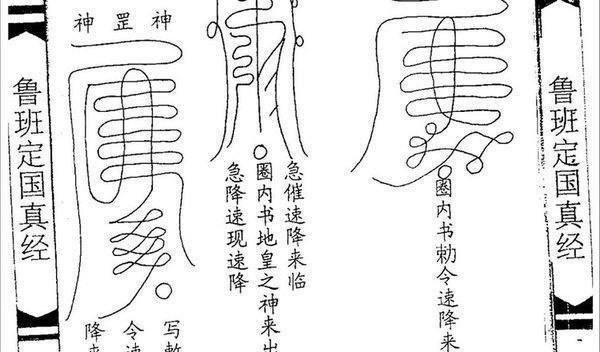 鲁班定国真经
圈内书勅令速降来
急催速降来临
圈内书地皇之神来出
急降速现速降
神罡神
写
令速
降来
鲁班定国真经